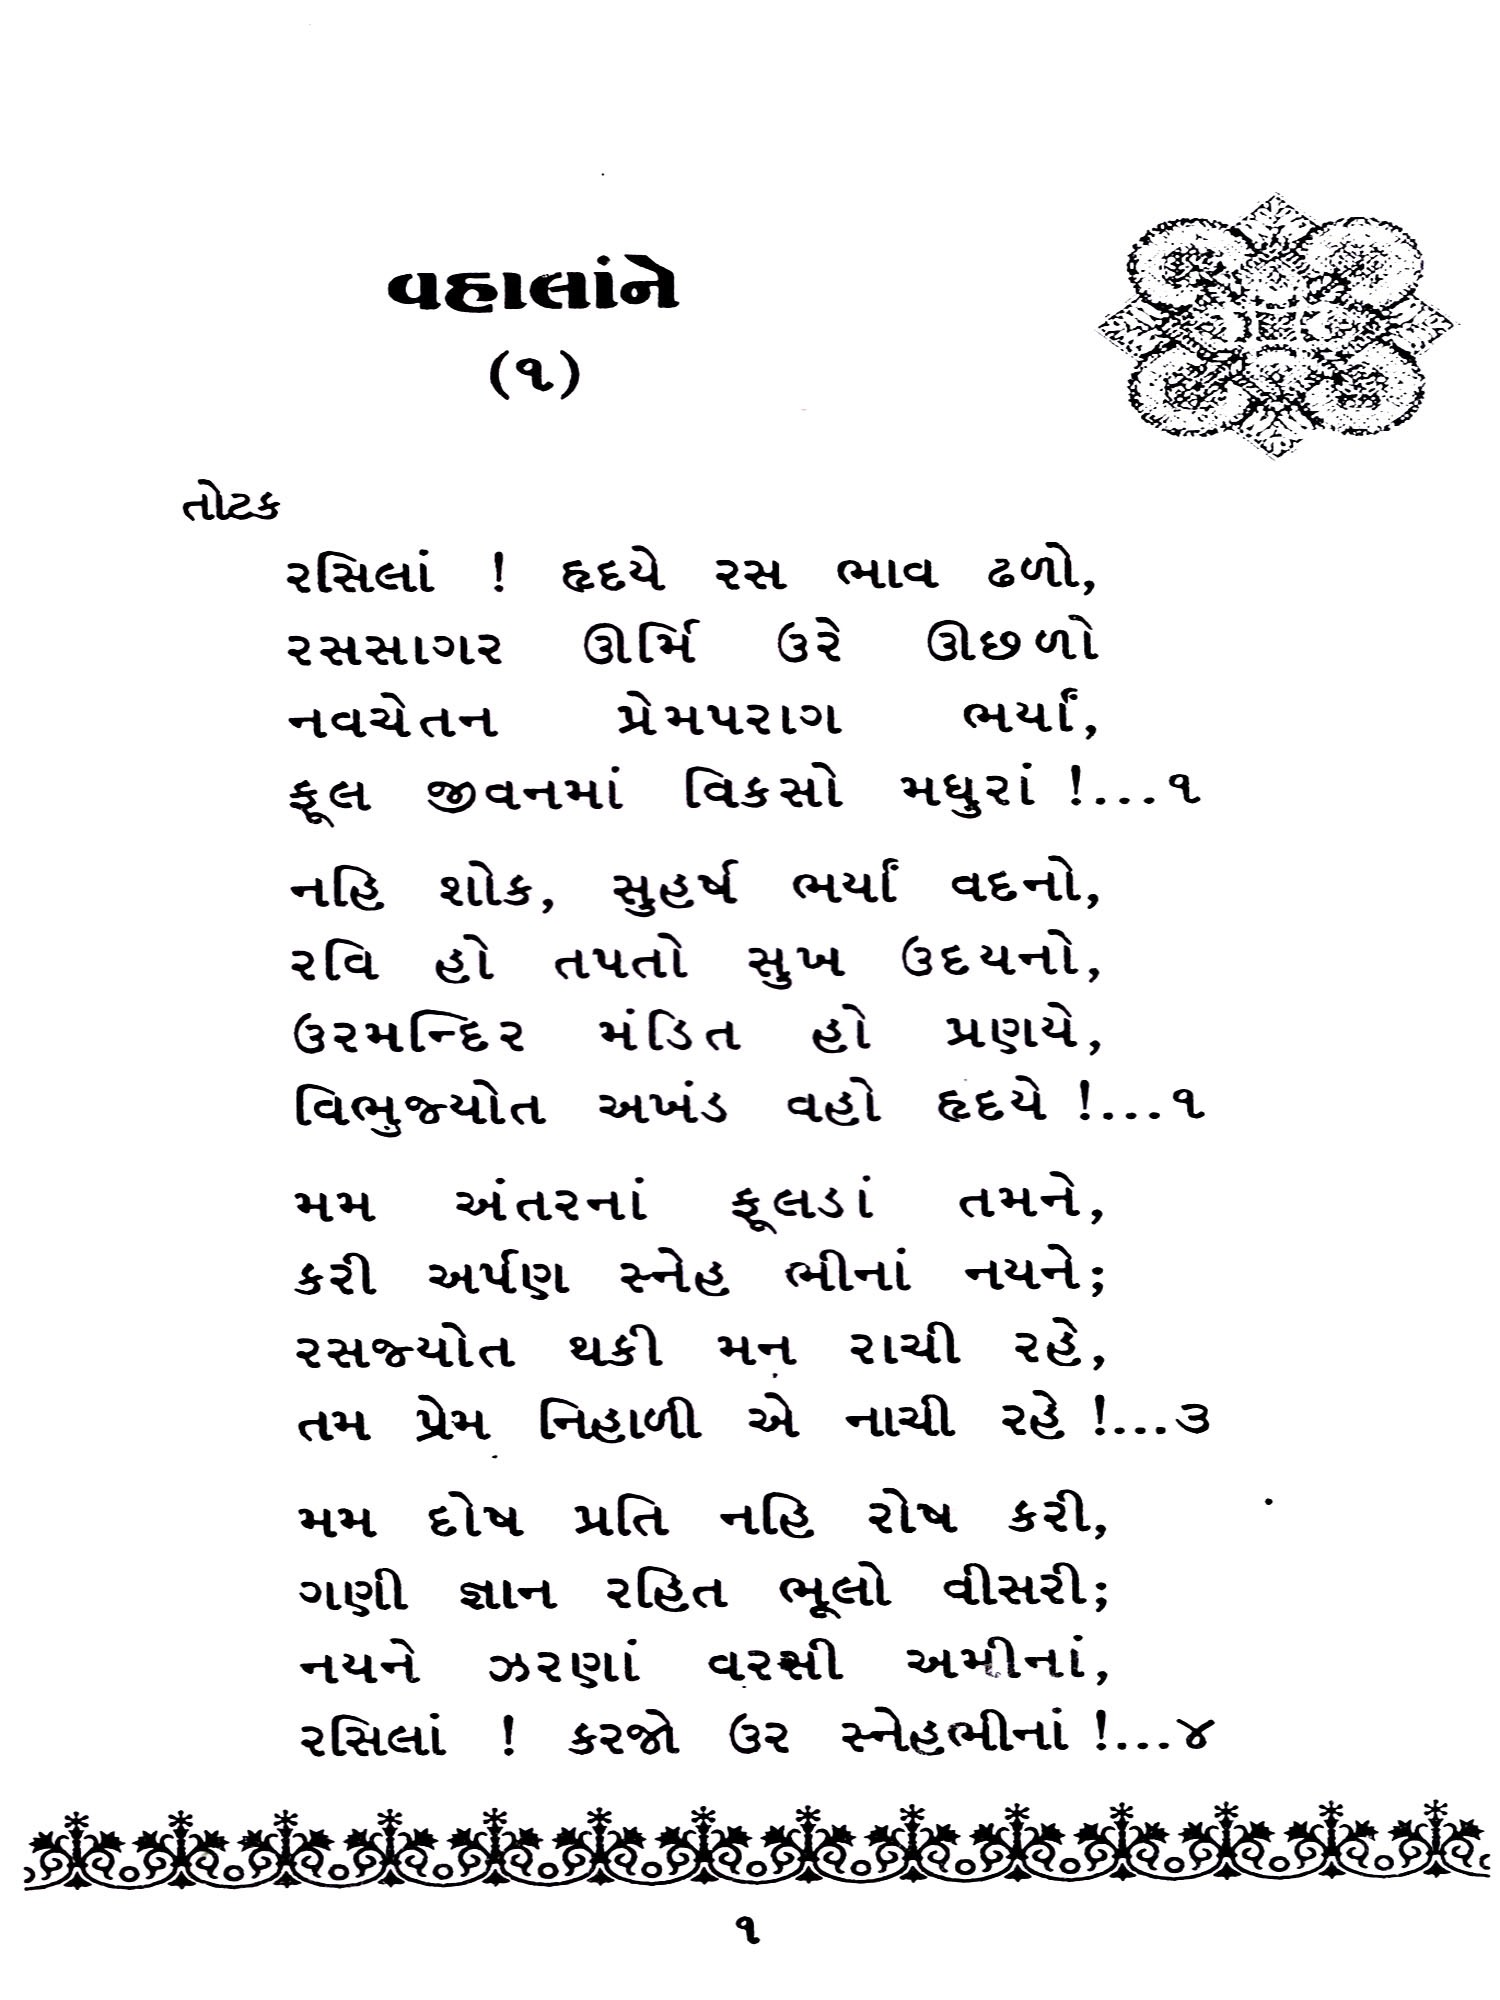 વહાલાંને
(૧)
તોટક
રસિલાં ! હૃદયે રસ ભાવ ઢળો,
રસસાગર ઊર્મિ ઉરે ઊછળો
નવચેતન પ્રેમપરાગ ભર્યાં,
ફૂલ જીવનમાં વિકસો મધુરાં !...૧
નહિ શોક, સુહર્ષ ભર્યાં વદનો,
રવિ હો તપતો સુખ ઉદયનો,
ઉરમન્દિર મંડિત હો પ્રણયે,
વિભુજ્યોત અખંડ વહો હૃદયે !...૧
મમ અંતરનાં ફૂલડાં તમને,
કરી અર્પણ સ્નેહ ભીનાં નયને;
રસજ્યોત થકી મન રાચી રહે,
તમ પ્રેમ નિહાળી એ નાચી રહે !...૩
મમ દોષ પ્રતિ નહિ રોષ કરી,
ગણી જ્ઞાન રહિત ભૂલો વીસરી;
નયને ઝરણાં વરસી અમીનાં,
રસિલાં ! કરજો ઉર સ્નેહભીનાં !...૪
૧